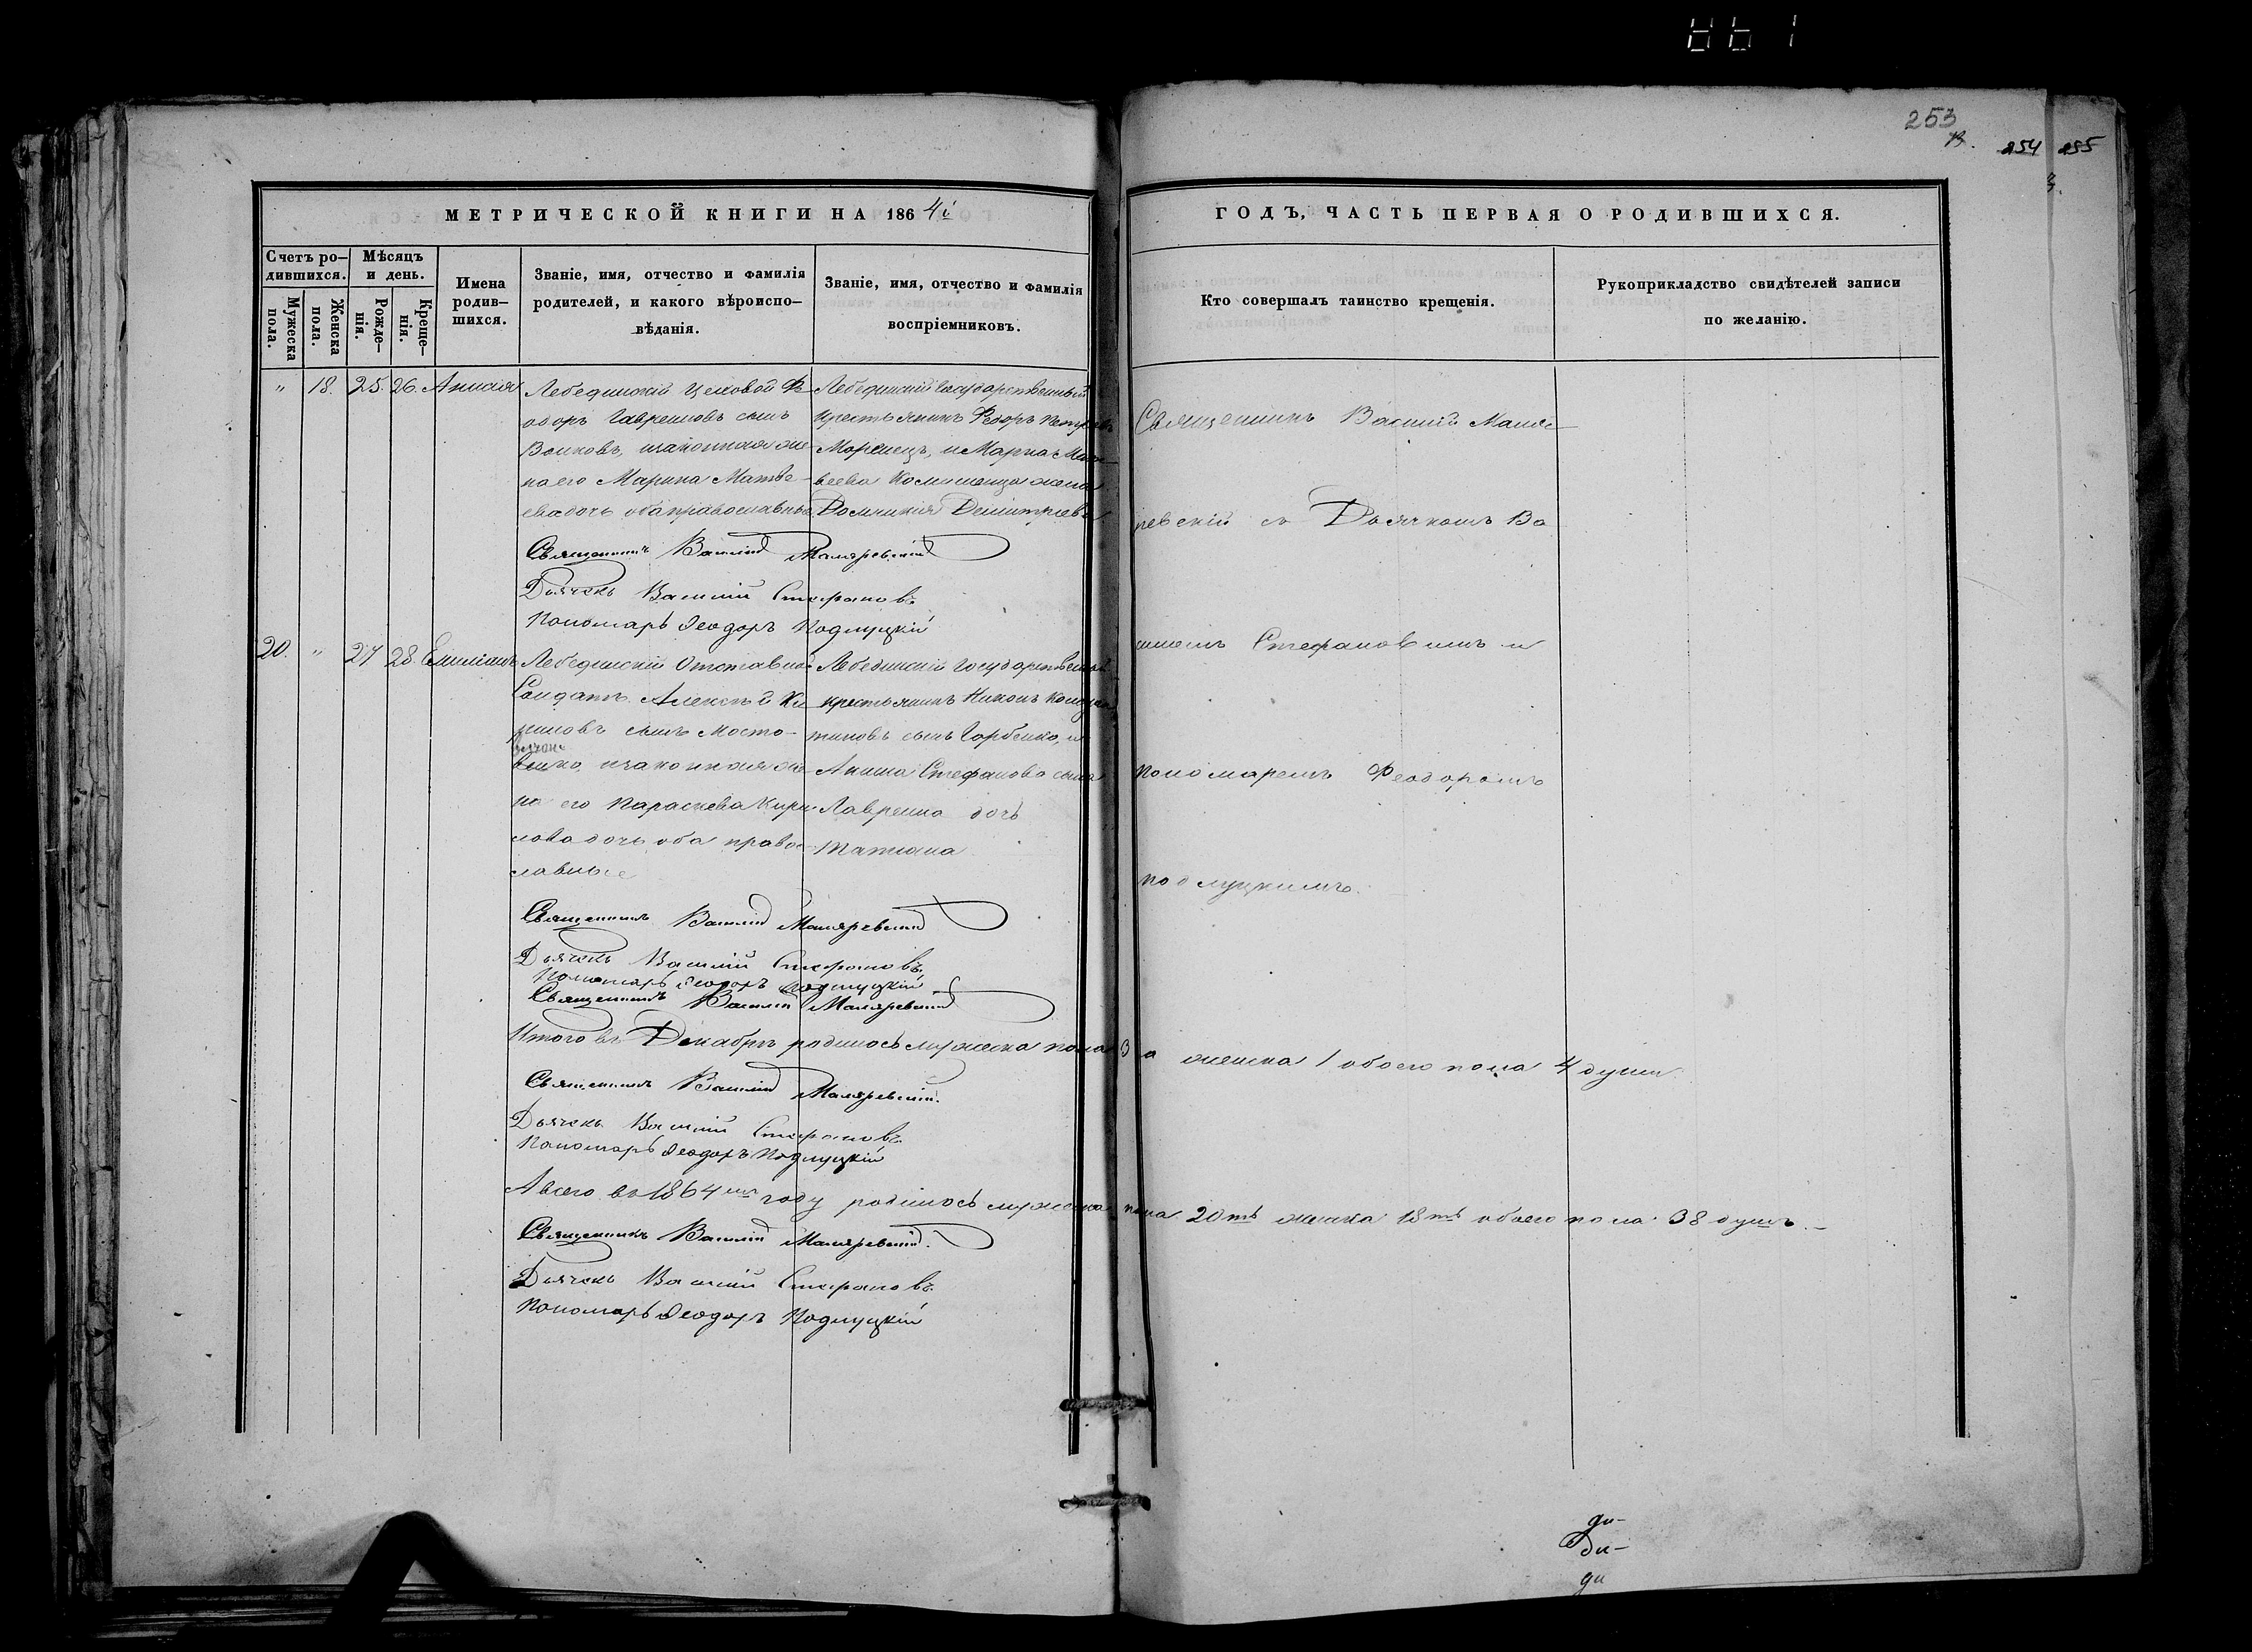 253
254 255
МЕТРИЧЕСКОЙ КНИГИ НА 1864й
ГОДЪ, ЧАСТЬ ПЕРВАЯ О РОДИВШИХСЯ.
Счетъ ро-
дившихся.
Мужеска
пола.
Женска
пола.
Мѣсяцъ
и день.
Рожде-
нія.
Креще-
нія.
Имена
родив-
шихся.
Званіе, имя, отчество и фамилія
родителей, и какого вѣроиспо-
вѣданія.
Званіе, имя, отчество и фамилія
воспріемниковъ.
Кто совершалъ таинство крещенія.
Рукоприкладство свидѣтелей записи
по желанію.
" 18. 25. 26. Анисія
Лебединскій Цеховой Фе-
одоръ Гавриловъ сынъ
Волковъ, изаконная же-
на его Марина Матѳе-
ева дочь оба православные
Лебединскій Государственный
крестьянинъ Ѳеодоръ Петровъ
и Марѳа
жена
Домникія Димитріева
Священникъ Василій Маляревскій
Дьячекъ Василій Стефановъ
Пономарь Ѳеодоръ Подлуцкій
20. " 27 28 Емиліанъ
Лебединскій Отставной
Солдатъ Алексѣй Ки-
риловъ сынъ Мосто-
изаконная же-
на его Параскева Кири-
лова дочь оба право-
славные
Лебединскій Государственный
крестьянинъ Никонъ Констан-
тиновъ сынъ Горбенко, и
Анна Стефанова сына
Лавренка дочь
Татіана
Священникъ Василій Маляревскій
Дьячекъ Василій Стефановъ
Пономарь Ѳеодоръ Подлуцкій
Священникъ Василій Маляревскій
Священникъ Василій Маля-
ревскій съ Дьячкомъ Ва-
силіемъ Стефановымъ и
пономаремъ Феодоромъ
Подлуцкимъ.
Итого въ Декабрѣ родилось мужеска пола 3 а женска 1 обоего пола 4 души.
Священникъ Василій Маляревскій.
Дьячекъ Василій Стефановъ
Пономарь Ѳеодоръ Подлуцкій
А всего въ 1864мъ году родилось мужеска пола 20ть женска 18ть обоего пола 38 душъ.
Священникъ Василій Маляревскій.
Дьячекъ Василій Стефановъ
Пономарь Ѳеодоръ Подлуцкій